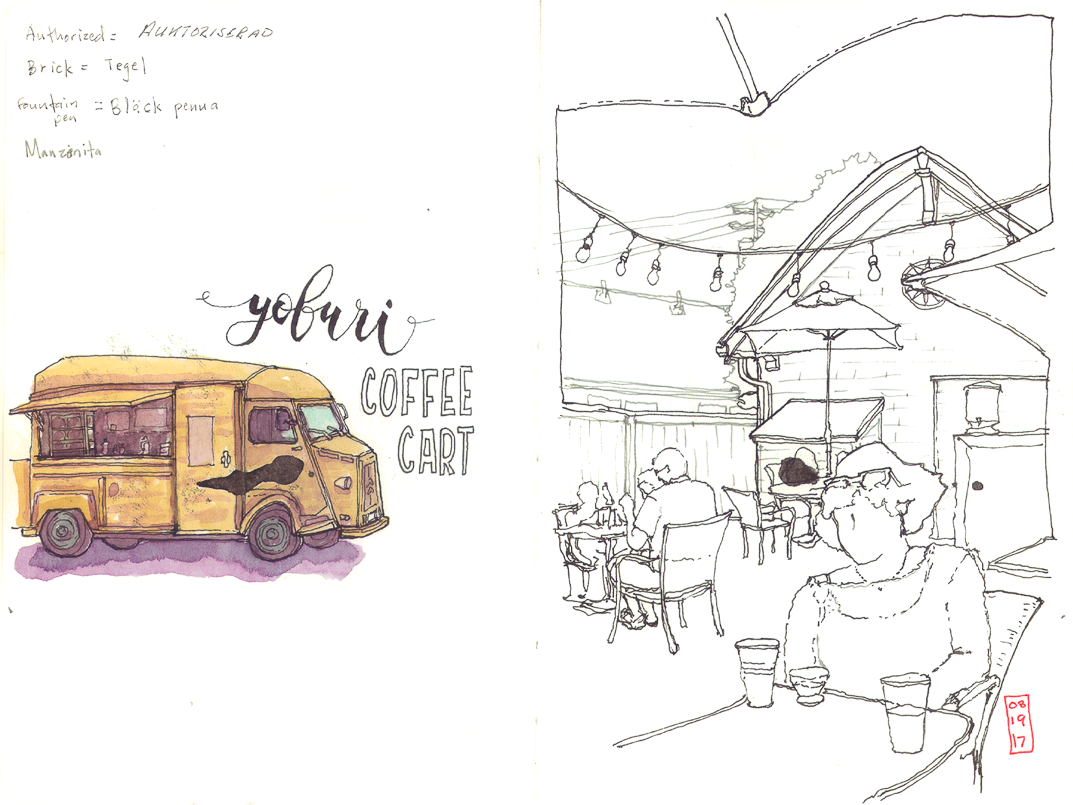 Authorized = AUKTORISERAD
Brick = Tegel
Fountain pen = Bläck penna
Manzanita
yoburi
COFFEE
CART
08
19
17